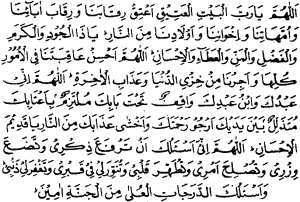 اَللّٰهُمَّ يَارَبَّ الْبَيْتِ الْعَتِيْقِ اَعْتِقْ رِقَابَنَا وَ رِقَابَ اٰبَآئِنَا
وَ اُمَّهَاتِنَا وَ اِخْوَانِنَا وَ اَوْلَادِنَا مِنَ النَّارِ، يَا ذَا الْجُوْدِ وَالْكَرَمِ
وَالْفَضْلِ وَ الْمَنِّ وَالْعَطَآءِ وَالْاِحْسَانِ، اَللّٰهُمَّ اَحْسِنْ عَاقِبَتَنَا فِي الْاُمُوْرِ
كُلِّهَا وَ اَجِرْنَا مِنْ خِزْيِ الدُّنْيَا وَ عَذَابِ الْاٰخِرَةِ، اَللّٰهُمَّ اِنِّيْ
عَبْدُكَ وَابْنُ عَبْدِكَ وَاقِفٌ تَحْتَ بَابِكَ مُلْتَزِمٌ بِاَعْتَابِكَ
مُتَذَلِّلٌ بَيْنَ يَدَيْكَ اَرْجُوْ رَحْمَتَكَ وَ اَخْشٰى عَذَابَكَ مِنَ النَّارِ يَا قَدِيْمَ
الْاِحْسَانِ، اَللّٰهُمَّ اِنِّيْ اَسْئَلُكَ اَنْ تَرْفَعَ ذِكْرِيْ وَ تَضَعَ
وِزْرِيْ وَ تُصْلِحَ اَمْرِيْ وَ تُطَهِّرَ قَلْبِيْ وَ تُنَوِّرَ لِيْ فِيْ قَبْرِيْ وَ تَغْفِرَ لِيْ ذَنْبِيْ
وَ اَسْئَلُكَ الدَّرَجَاتِ الْعُلٰى مِنَ الْجَنَّةِ اٰمِيْنَ،